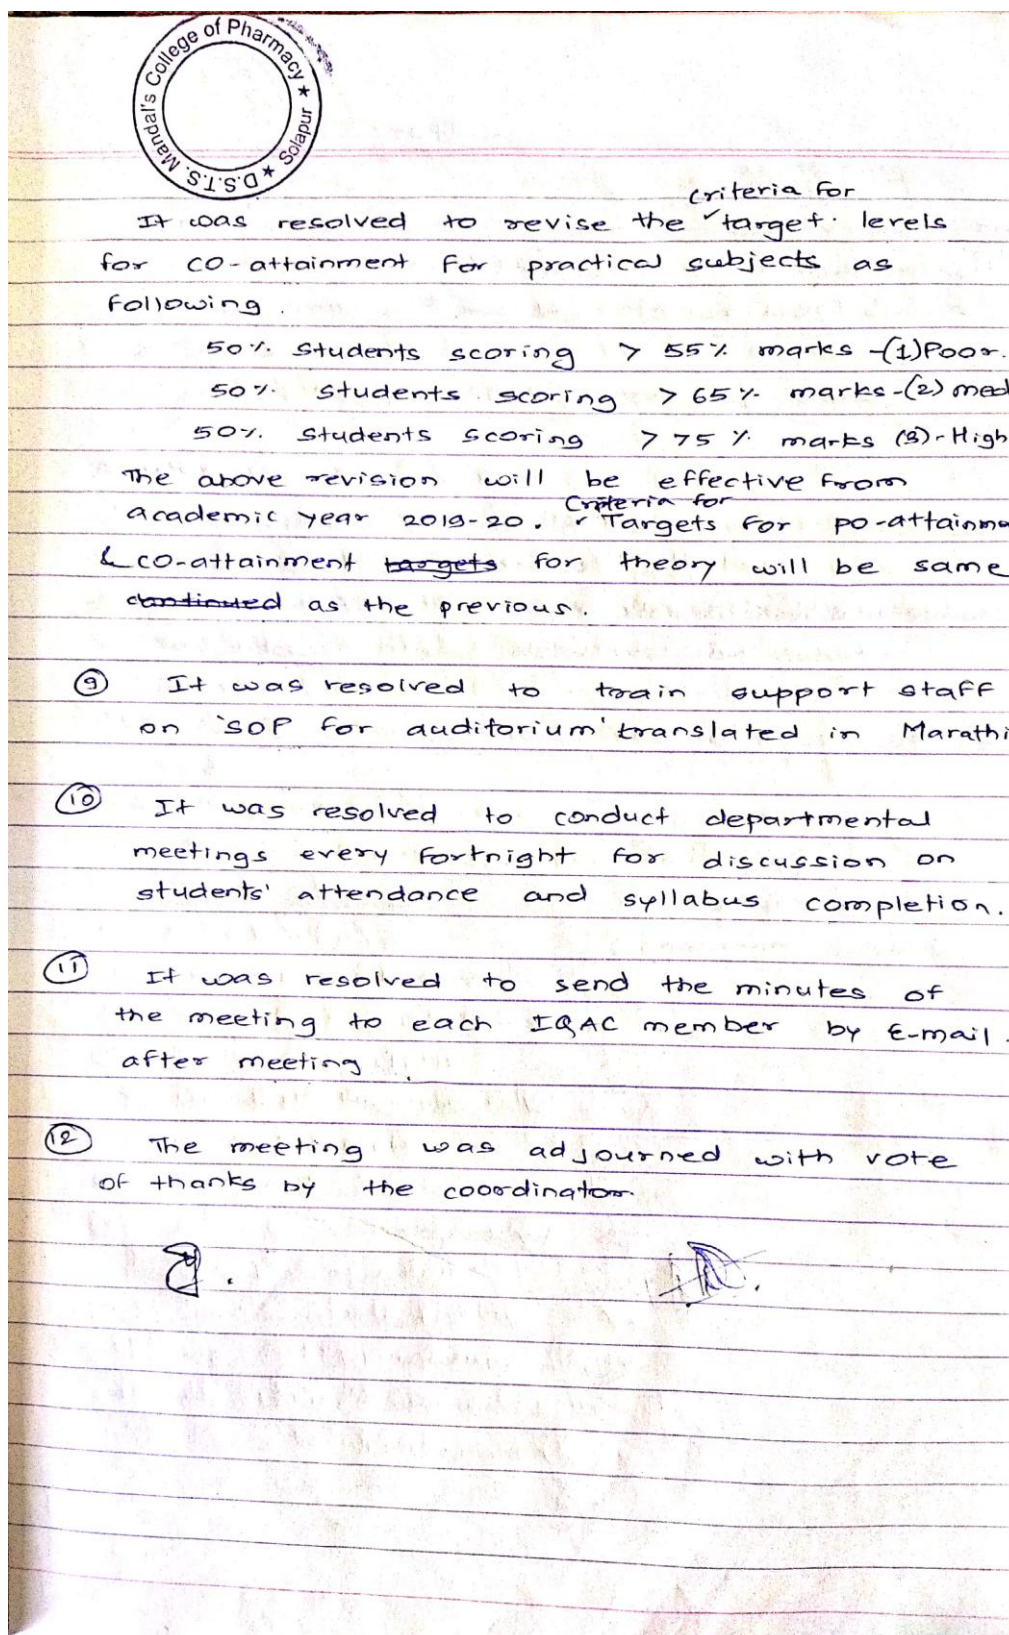 D.S.T.S. Mandal's College of Pharmacy ★ Solapur ★
criteria for
It was resolved to revise the ✓target. levels
for CO-attainment for practical subjects as
following.
50% students scoring > 55% marks -(1)Poor.
50% students scoring > 65% marks-(2) med
50% students scoring > 75% marks (3)-High
The above revision will be effective from
Criteria for
academic year 2019-20. ✓Targets for po-attainme
& co-attainment targets for theory will be same
continued as the previous.
⑨ It was resolved to train support staff
on 'SOP for auditorium' translated in Marathi
⑩ It was resolved to conduct departmental
meetings every fortnight for discussion on
students' attendance and syllabus completion.
⑪ It was resolved to send the minutes of
the meeting to each IQAC member by E-mail.
after meeting.
⑫ The meeting was adjourned with vote
of thanks by the coordinator.